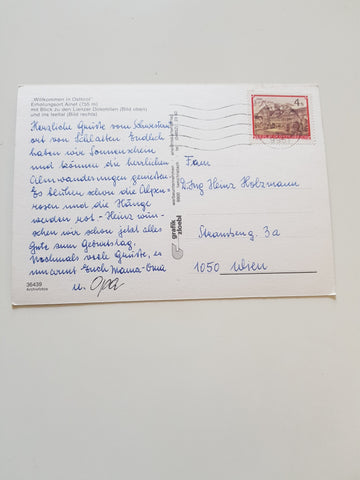 „Willkommen in Osttirol"
Erholungsort Ainet (755 m)
mit Blick zu den Lienzer Dolomiten (Bild oben)
und ins Iseltal (Bild rechts)
Herzliche Grüße vom Schwestern
ort von Schlaiten. Endlich
haben wir Sonnenschein
und können die herrlichen
Almwanderungen genießen.
Es blühen schon die Alpen-
rosen und die Hänge
werden rot - Heinz wün-
schen wir schon jetzt alles
Gute zum Geburtstag.
Nochmals viele Grüße, es
umarmt Euch Mama-Oma
u. Opa
36439
grafik zloebl
4 S
Fam
D. Ing Heinz Holzmann
Straußeng. 3a
1050 Wien